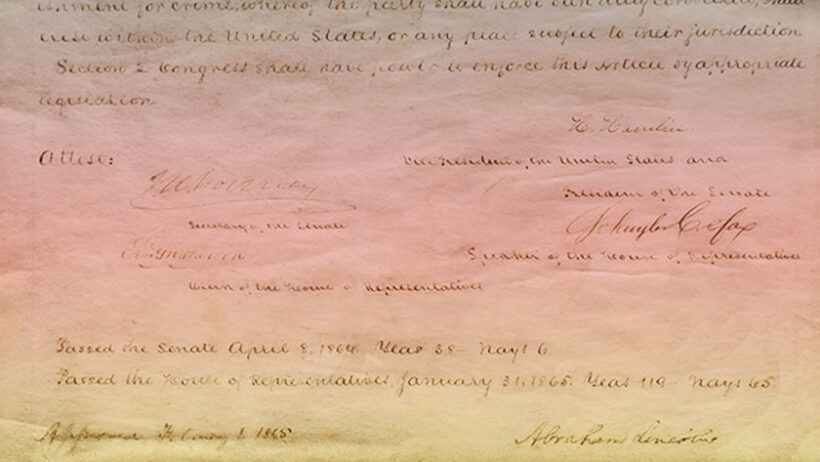 ishment for crime, whereof the party shall have been duly convicted, shall
exist within the United States, or any place subject to their jurisdiction
Section 2 Congress shall have power to enforce this Article by appropriate
legislation
H. Hamlin
Attest:
Vice President of the United States and
President of the Senate
J W Forney
Schuyler Colfax
Secretary of the Senate
Speaker of the House of Representatives
Clerk of the House of Representatives
Passed the Senate April 8, 1864 Yeas 38 – Nays 6
Passed the House of Representatives, January 31, 1865. Yeas 119 – Nays 65
Approved February 1. 1865.
Abraham Lincoln